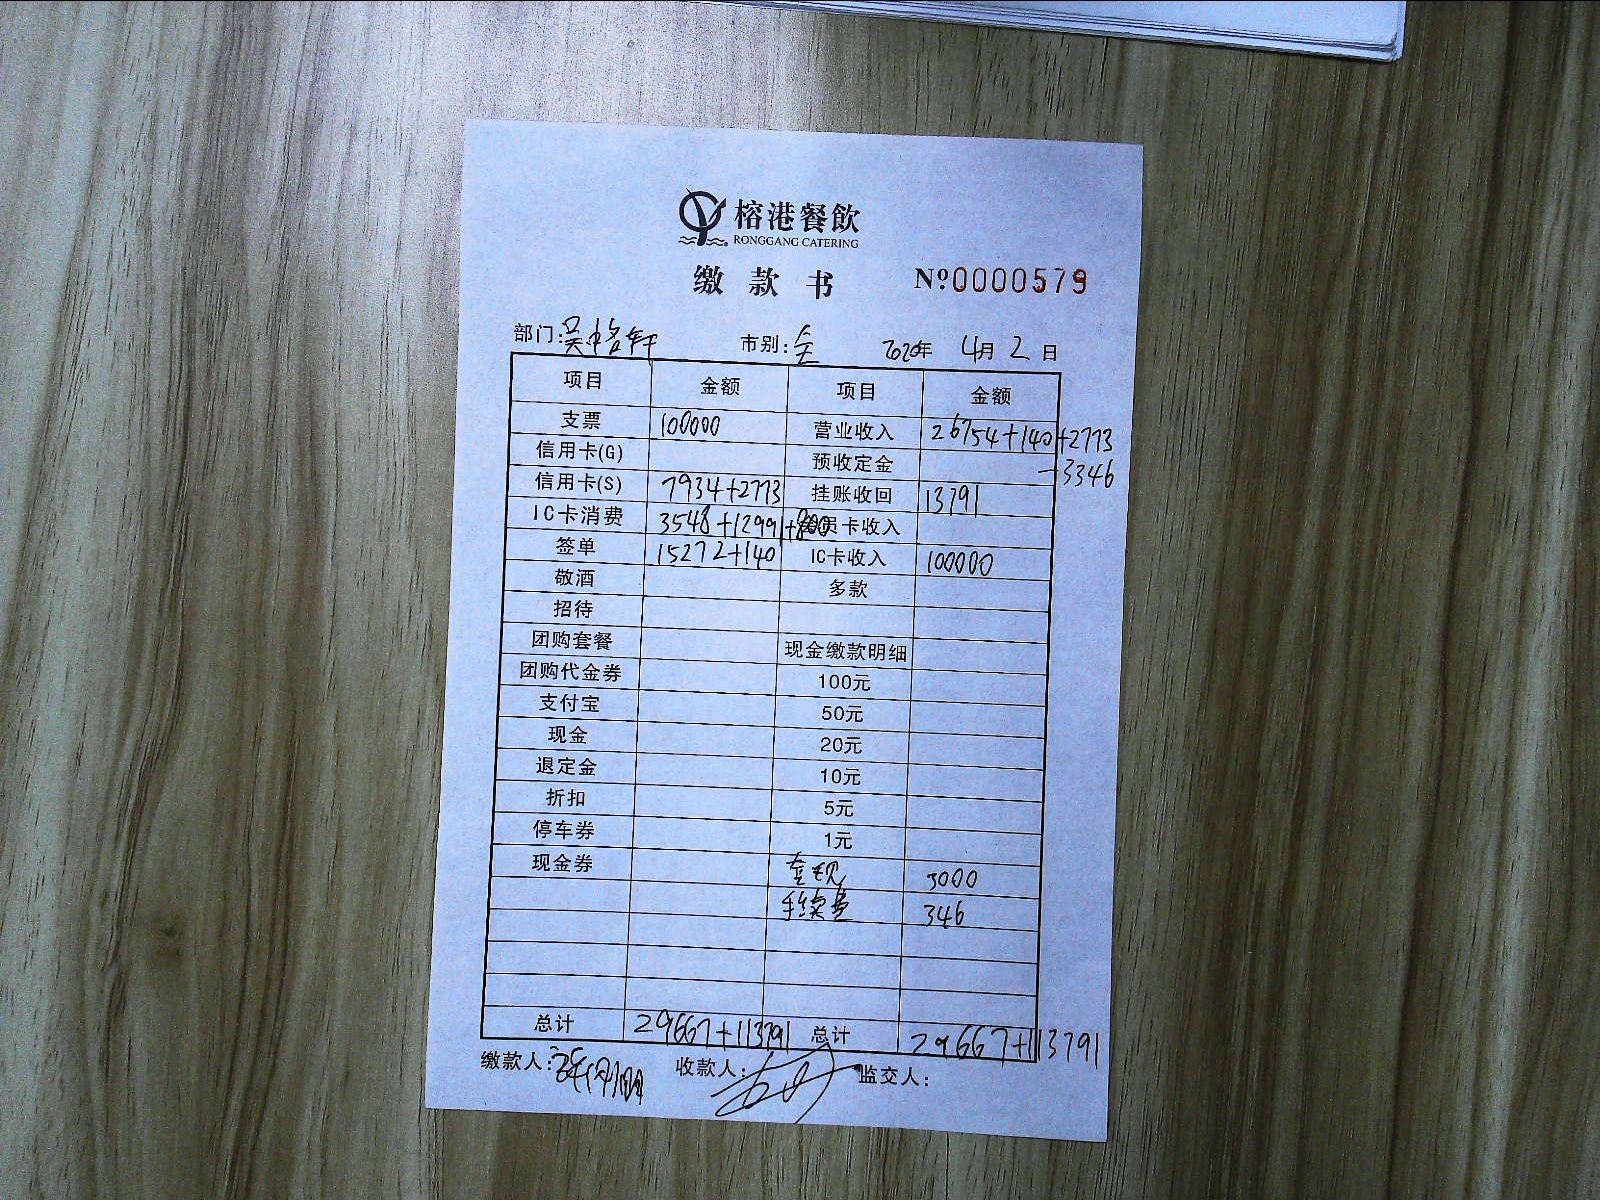 榕港餐飲
RONGGANG CATERING
缴款书 №0000579
部门: 吴榕轩 市别: 全 2020年 4月 2日
项目 金额 项目 金额
支票 100000 营业收入 26754+140+2773
信用卡(G) 预收定金 -3346
信用卡(S) 7934+2773 挂账收回 13791
IC卡消费 3548+12991+800 员卡收入
签单 15272+140 IC卡收入 100000
敬酒 多款
招待
团购套餐 现金缴款明细
团购代金券 100元
支付宝 50元
现金 20元
退定金 10元
折扣 5元
停车券 1元
现金券 套现 3000
手续费 346
总计 29667+113791 总计 29667+113791
缴款人: 收款人: 监交人: